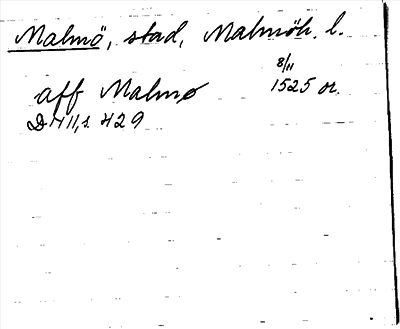 Malmö, stad, Malmöh. l.
8/11
aff Malmø 1525 or.
DN 11, s. 429